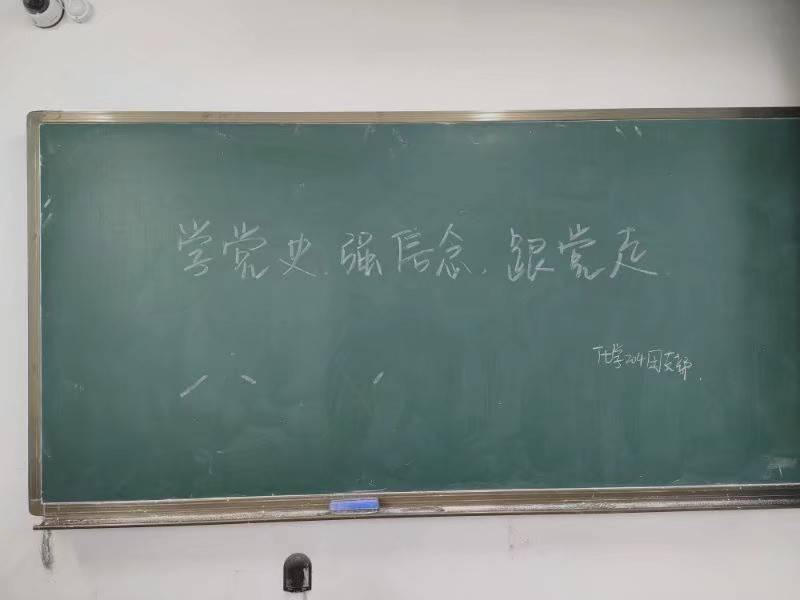 学党史.强信念.跟党走
化学204团支部.